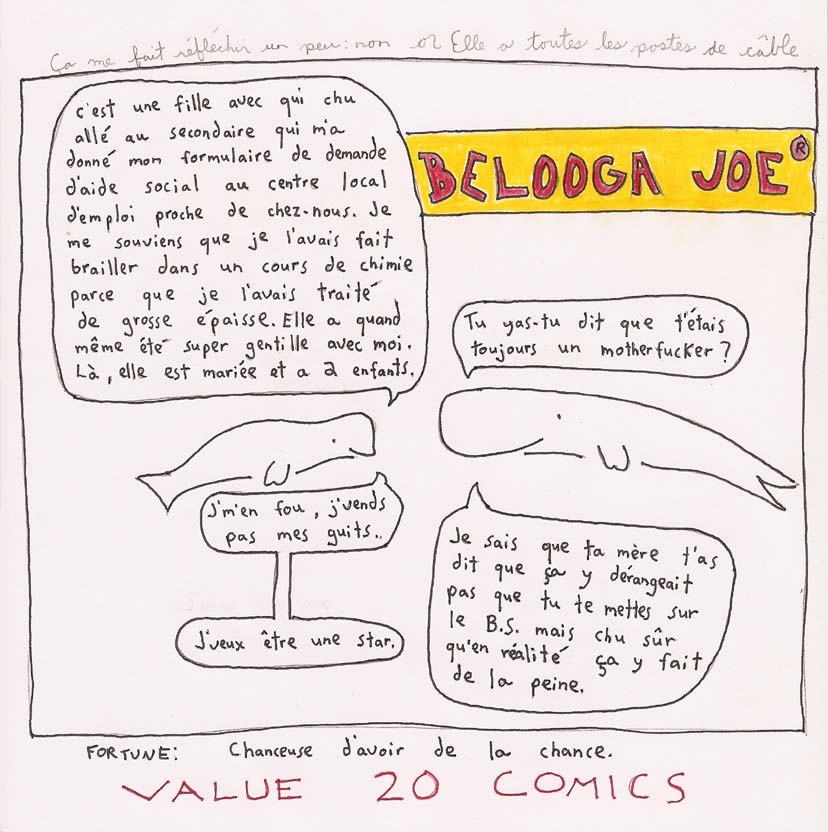 Ça me fait réfléchir un peu: non or Elle a toutes les postes de câble
c'est une fille avec qui chu
allé au secondaire qui m'a
donné mon formulaire de demande
d'aide social au centre local
d'emploi proche de chez-nous. Je
me souviens que je l'avais fait
brailler dans un cours de chimie
parce que je l'avais traité
de grosse épaisse. Elle a quand
même été super gentille avec moi.
Là, elle est mariée et a 2 enfants.
BELOOGA JOE®
Tu yas-tu dit que t'étais
toujours un motherfucker?
J'm'en fou, j'vends
pas mes guits..
J'veux être une star.
Je sais que ta mère t'as
dit que ça y dérangeait
pas que tu te mettes sur
le B.S. mais chu sûr
qu'en réalité ça y fait
de la peine.
FORTUNE: Chanceuse d'avoir de la chance.
VALUE 20 COMICS